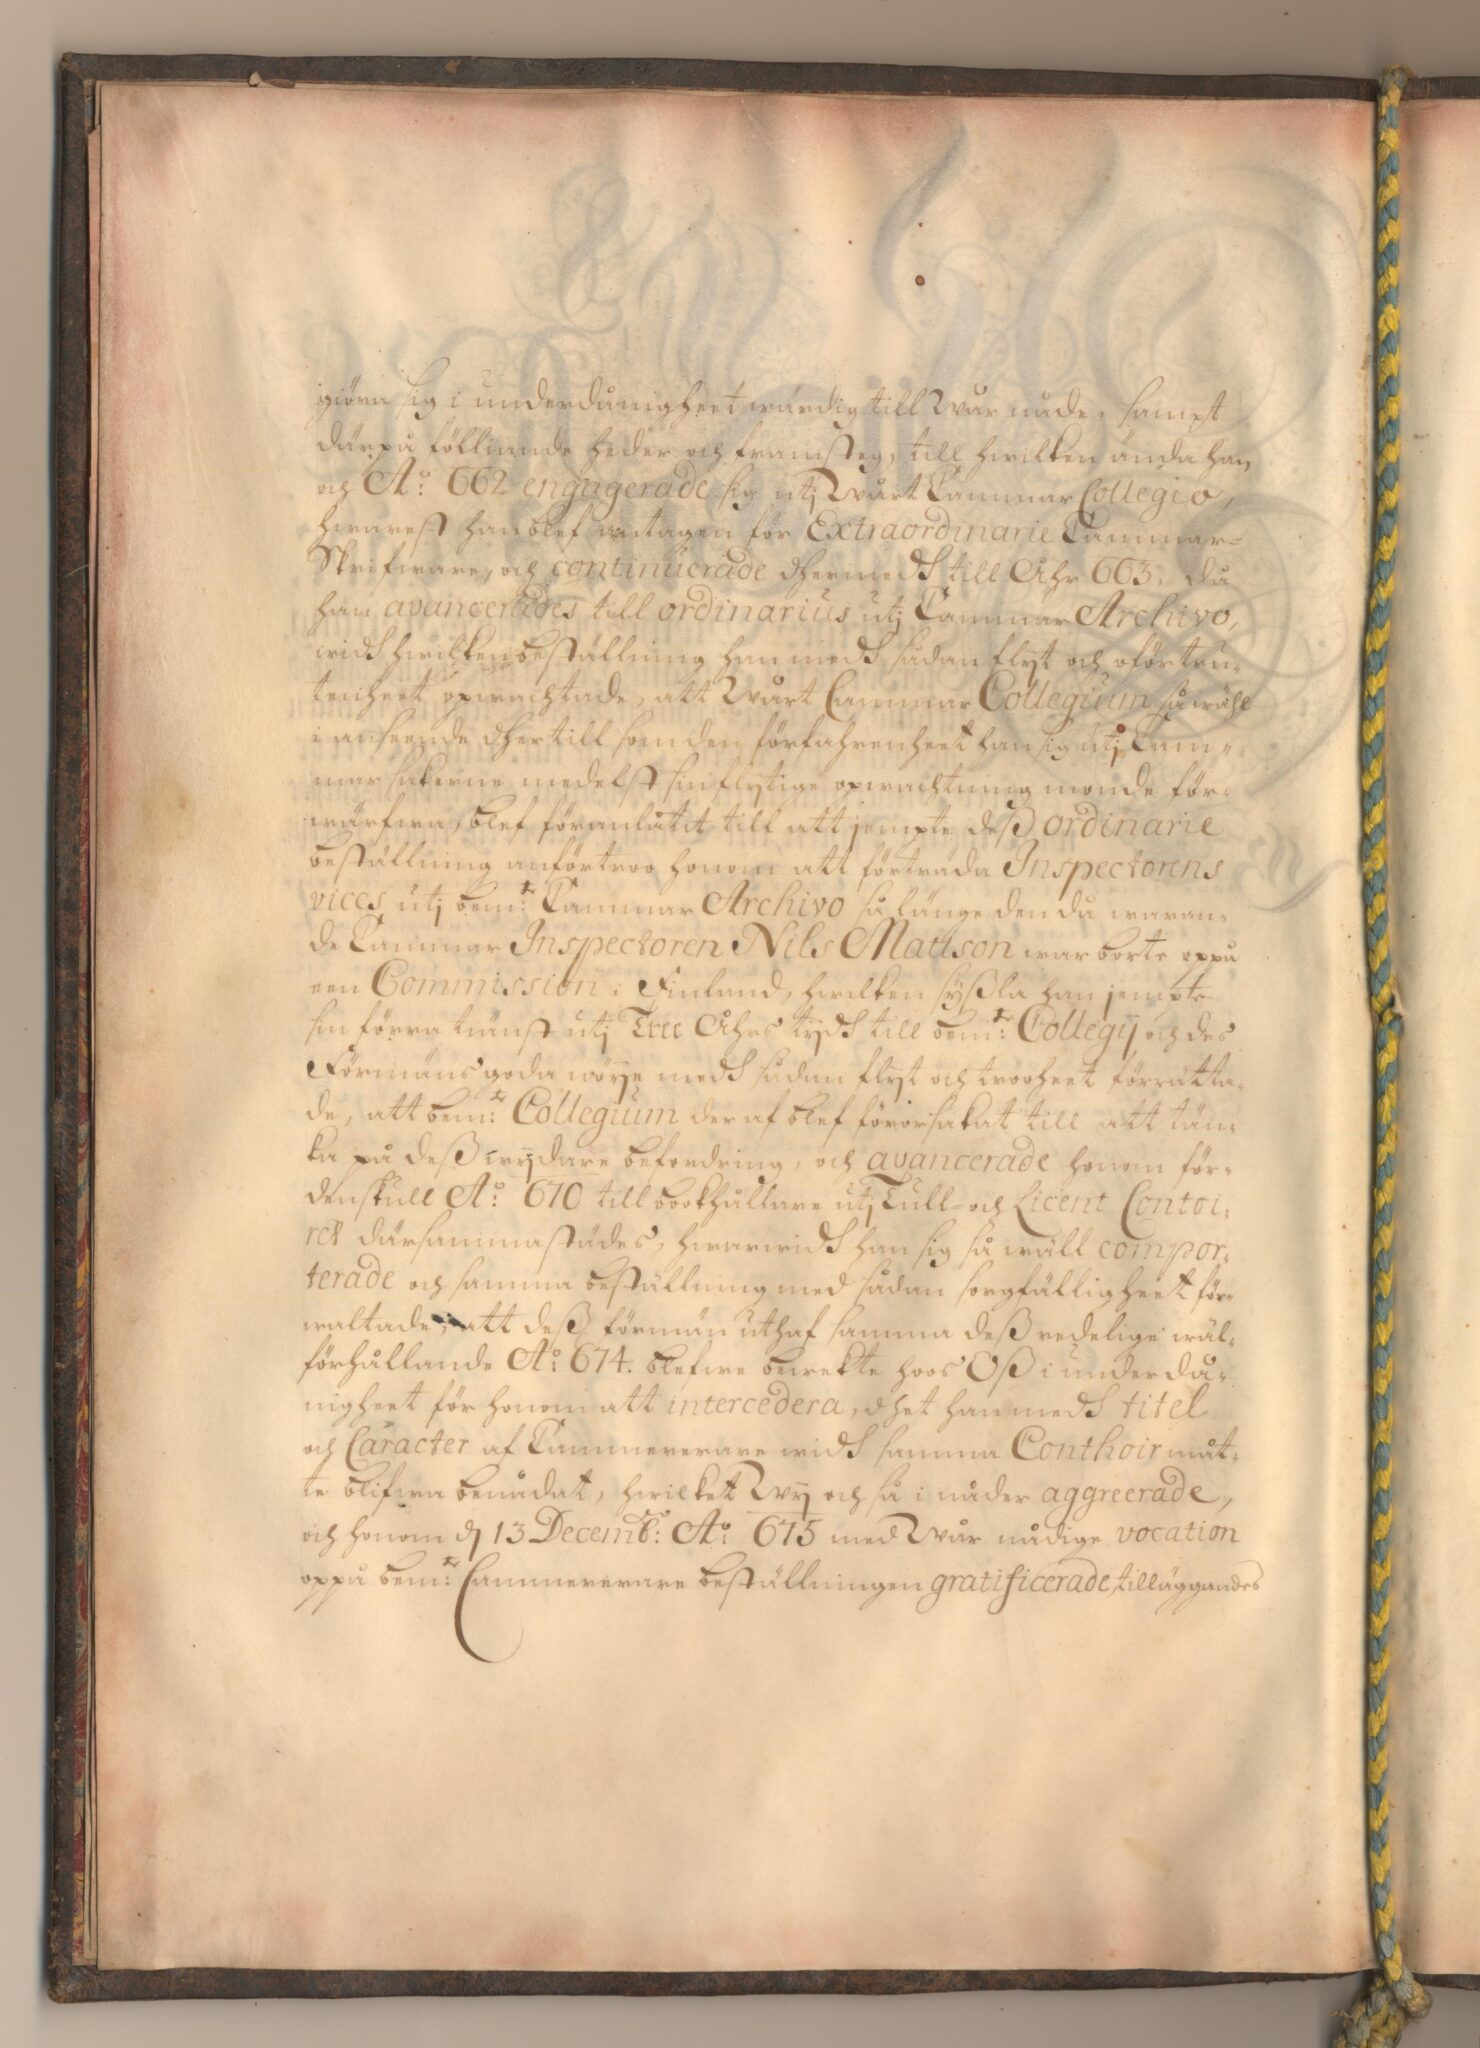 giöra sig i underdånigheet wärdig till Wår nåde, sampt
därpå fölliande heder och framsteg, till hwilken ända han
och A:o 662 engagerade sig utj Wårt Cammar Collegio,
hwarest han blef antagen för Extraordinarie Cammar-
Skrifware, och continuerade dhermedh till Åhr 663, då
han avancerades till ordinarius utj Cammar Archivo,
widh hwilken beställning han medh sådan flyt och oförtru-
tenheet opwachtade, att Wårt Cammar Collegium så wähl
i anseende dhertill som den förfahrenheet han sig utj Cam-
mar sakerne medelst sin flytige opwachtning monde för-
wärfwa, blef föranlåtit till att jempte deß ordinarie
beställning anförtroo honom att förträda Inspectorens
vices utj bem:te Cammar Archivo så länge den då waran-
de Cammar Inspectoren Nils Matison war borte oppå
een Commission i Finland, hwilken syßla han jempte
sin förra tiänst utj Tree Åhrs tydh till bem:te Collegij och des
Förmäns goda nöije medh sådan flyt och trooheet förrätta-
de, att bem:te Collegium der af blef förorsakat till att tän-
ka på deß wijdare befordring, och avancerade honom för-
denskull A:o 670 till bookhållare utj Tull- och Licent Contoi-
ret därsammastädes, hwarwidh han sig så wäll compor-
terade och samma beställning med sådan sorgfälligheet för-
waltade, att deß förmän uthaf samma deß redelige wäl-
förhållande A:o 674. blefwe bewekte hoos Oß i underdå-
nigheet för honom att intercedera, dhet han medh titel
och Caracter af Cammererare widh samma Conthoir måt-
te blifwa benådat, hwilket Wij och så i nåder aggreerade,
och honom d 13 Decemb: A:o 675 med Wår nådige vocation
oppå bem:te Cammererare beställningen gratificerade, tilläggandes